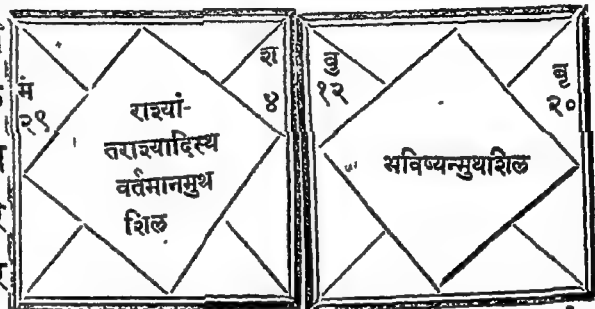 मं
२९
श
४
राश्यां-
तराश्यादिस्थ
वर्तमानमुथ
शिल
बु
१२
बृ
२०
भविष्यन्मुथशिल